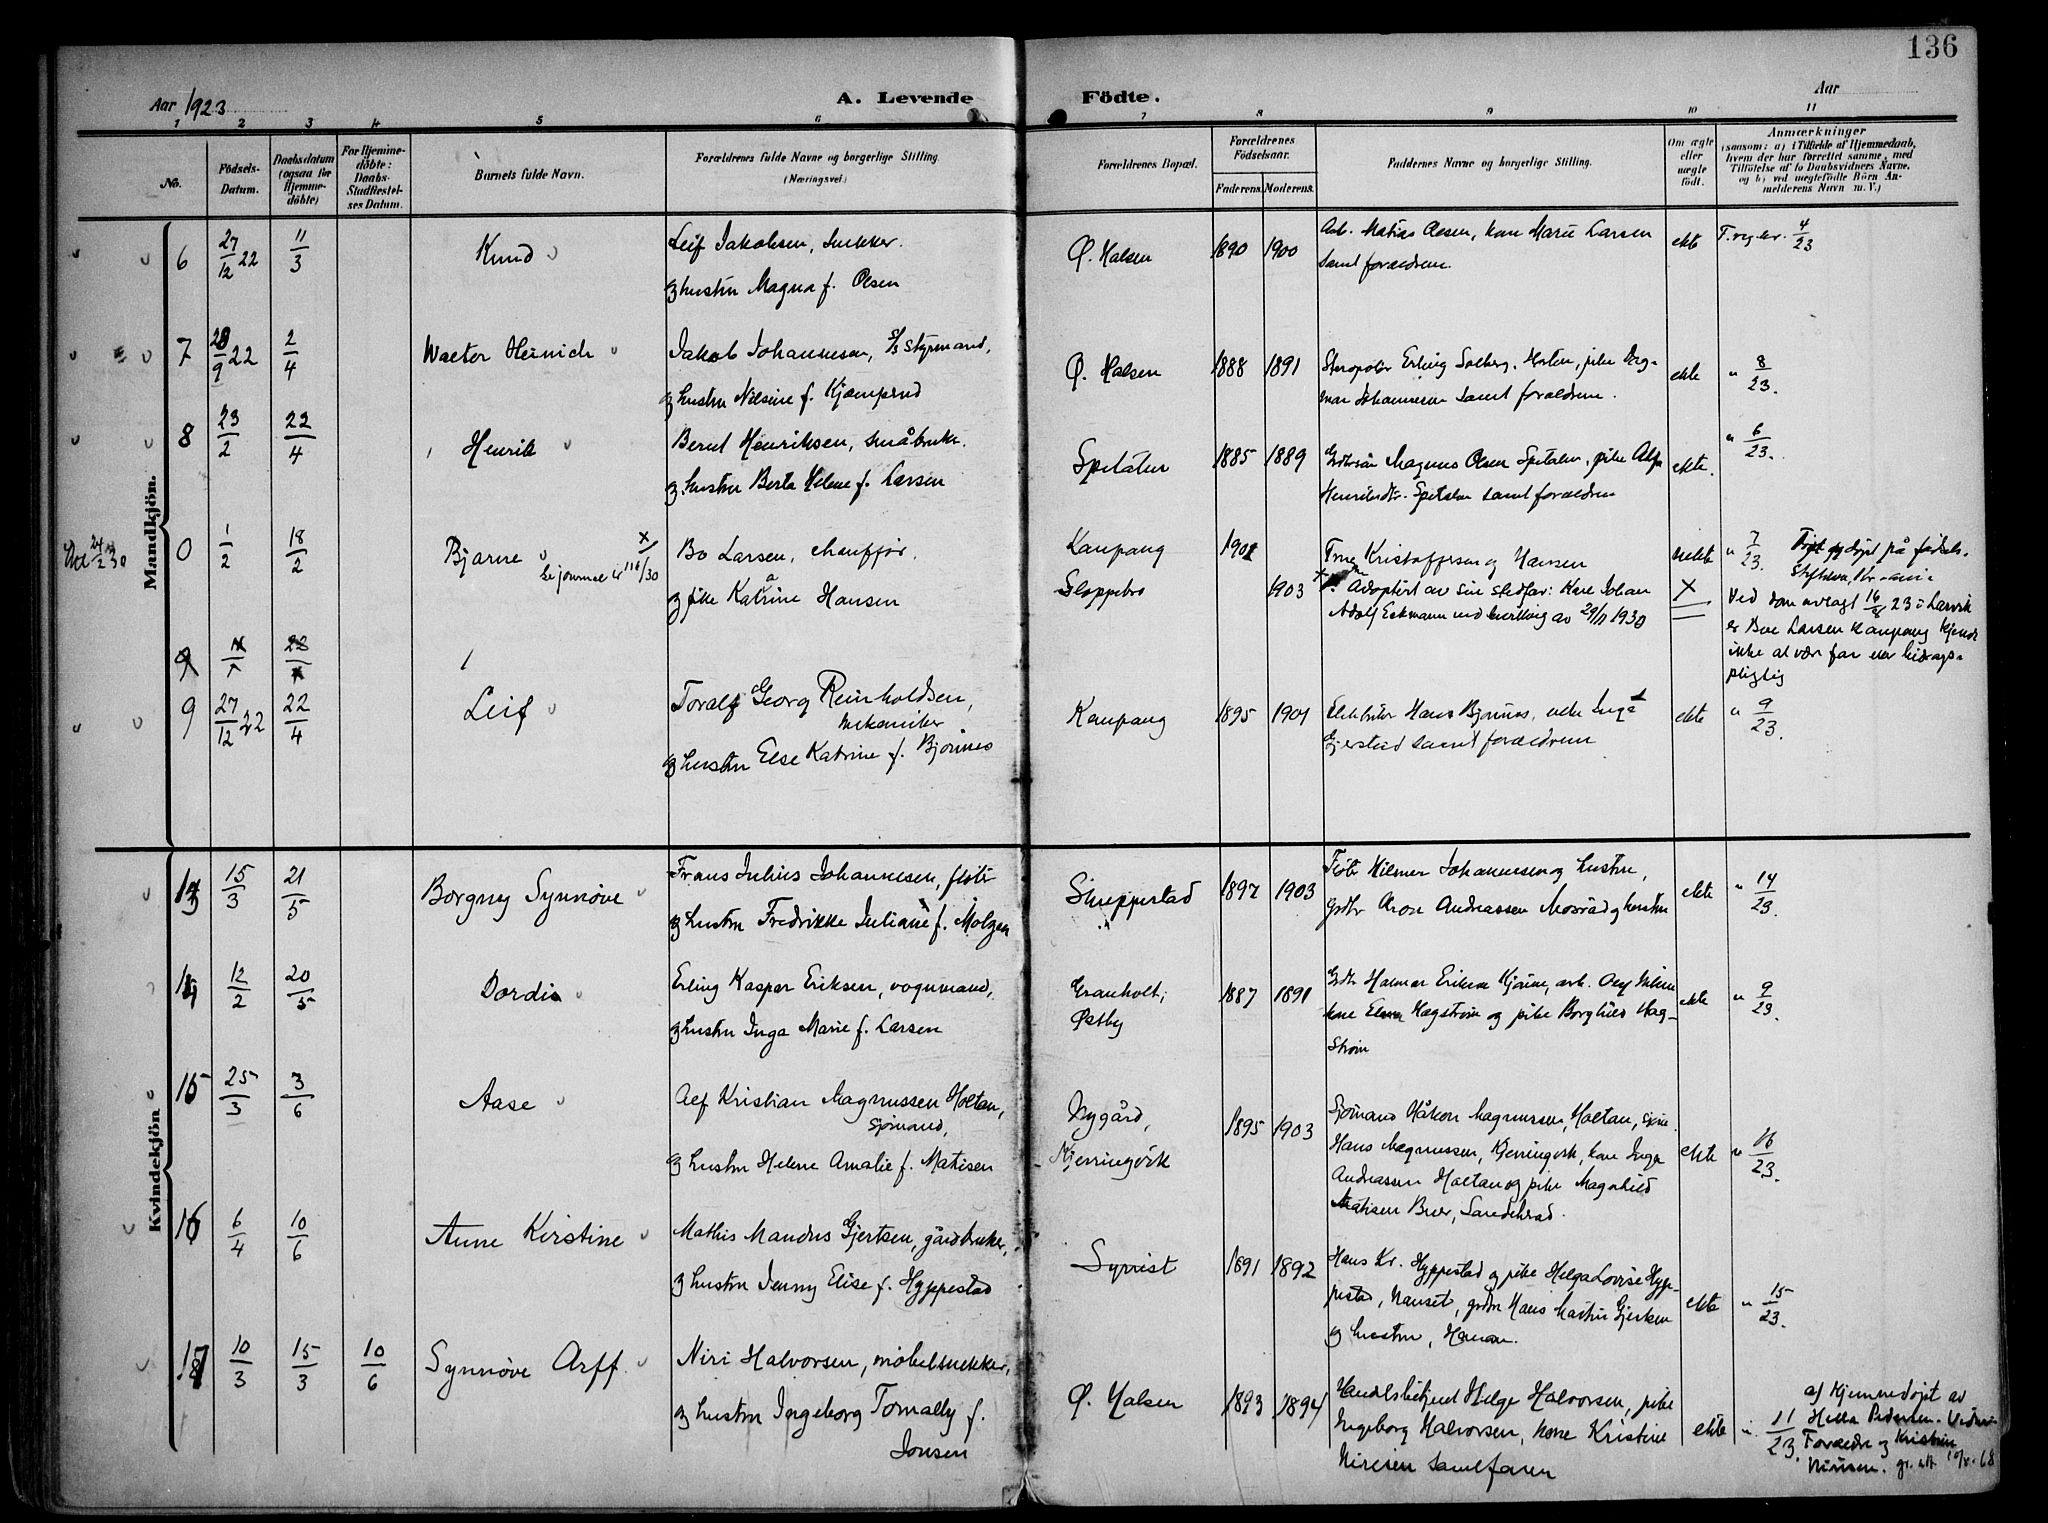 136
Aar 1923
A. Levende Födte.
Aar
1 2 3 4 5 6 7 8 9 10 11
No.
Födsels-Datum.
Daabsdatum (ogsaa for Hjemme-döbte)
For Hjemme-döbte: Daabs-Stadfæstel-ses Datum.
Barnets fulde Navn.
Forældrenes fulde Navne og borgerlige Stilling. (Næringsvei.)
Forældrenes Bopæl.
Forældrenes Födselsaar.
Faderens. Moderens.
Faddernes Navne og borgerlige Stilling.
Om ægte eller uægte födt.
Anmærkninger
(saasom: a) i Tilfælde af Hjemmedaab, hvem der har forrettet samme, med Tilföielse af to Daabsvidners Navne, og b) ved uægtefödte Börn An-melderens Navn m. V.)
Mandkjön.
6 27/12 22 11/3 Knud
Leif Jakobsen, snekker.
og hustru Magna f. Olsen
Ø. Halsen 1890 1900
Arb. Matias Olsen, kone Marie Larsen
samt forældrene.
ekte 4/23
7 28/9 22 2/4 Walter Heinich
Jakob Johannesen, s/s styrmand,
og hustru Nilsine f. Kjæmperud
Ø. Halsen 1888 1891
Erling Solberg, Horten, pike Dag-
mar Johannesen samt forældrene.
ekte " 8/23.
8 23/2 22/4 Henrik
Bernt Henriksen, småbruker.
og hustru Berta Helene f. Larsen
Spitalen 1885 1889
Magnus Olsen Spitalen, pike
Spitalen samt forældrene
ekte. " 6/23.
0 1/2 18/2 Bjarne
Se journal nr 116/30
Bo Larsen, chauffør.
og pike Katrine Hansen
Kaupang
Sloppebro
1901 1903
Kristoffersen og Hansen
Adoptert av sin stedfar: Kare Johan
Adolf Eckmann ved bevilling av 29/11 1930
uekte " 7/23.
Født og døpt på fødsels-
stiftelsen, Kr-ania
Ved dom avsagt 16/8 23 i Larvik
er Boe Larsen Kaupang kjendt
ikke at være far eller bidrags-
pligtig
9 27/12 22 22/4 Leif
Toralf Georg Reinholdsen,
mekaniker
og hustru Else Katrine f. Bjønnes
Kaupang 1895 1901
Hans Bjønnes, Inga
Gjerstad samt forældrene
ekte " 9/23.
Kvindekjön
13 15/3 21/5 Borgny Synnøve
Frans Julius Johannesen, fløter
og hustru Fredrikke Juliane f. Molzen
Skreppestad 1897 1903
Fløter Hilmer Johannesen og hustru,
grdbr Aron Andreassen og hustru
ekte " 14/23.
14 12/2 20/5 Dordi
Erling Kaspar Eriksen, vognmand,
og hustru Inga Marie f. Larsen
Granholt,
Østby
1887 1891
Grdbr Halmar Eriksen
kone Hagstrøm og pike Borghild Hag-
strøm
ekte " 9/23.
15 25/3 3/6 Aase
Alf Kristian Magnussen Holtan,
sjømand,
og hustru Helene Amalie f. Matisen
Nygård,
Kjerringvik
1895 1903
Sjømand Håkon Magnussen, Holtan,
Hans Magnussen, Kjerringvik, kone Inga
Andreassen Holtan og pike Magnhild
Matisen Buer, Sandeherad.
ekte " 16/23.
16 6/4 10/6 Anne Kirstine
Mathis Mandus Gjertsen, gårdbruker,
og hustru Jenny Elise f. Hyppestad
Syvrist 1891 1892
Hans Kr. Hyppestad og pike Helga Lovise Hyp-
pestad, Nanset, grdbr Hans Martin Gjertsen
og hustru,
ekte " 15/23.
17 10/3 15/3 10/6 Synnøve Arff
Niri Halvorsen, møbelsnekker,
og hustru Ingeborg Tomally f.
Jonsen
Ø. Halsen 1893 1894
Handelsbetjent Helge Halvorsen, pike
Ingeborg Halvorsen, kone Kristine
Nirisen samt faren
ekte " 11/23.
a) Hjemmedøpt av
Hella Pedersen. Vidner
Forældre og Kristine
Nirisen.